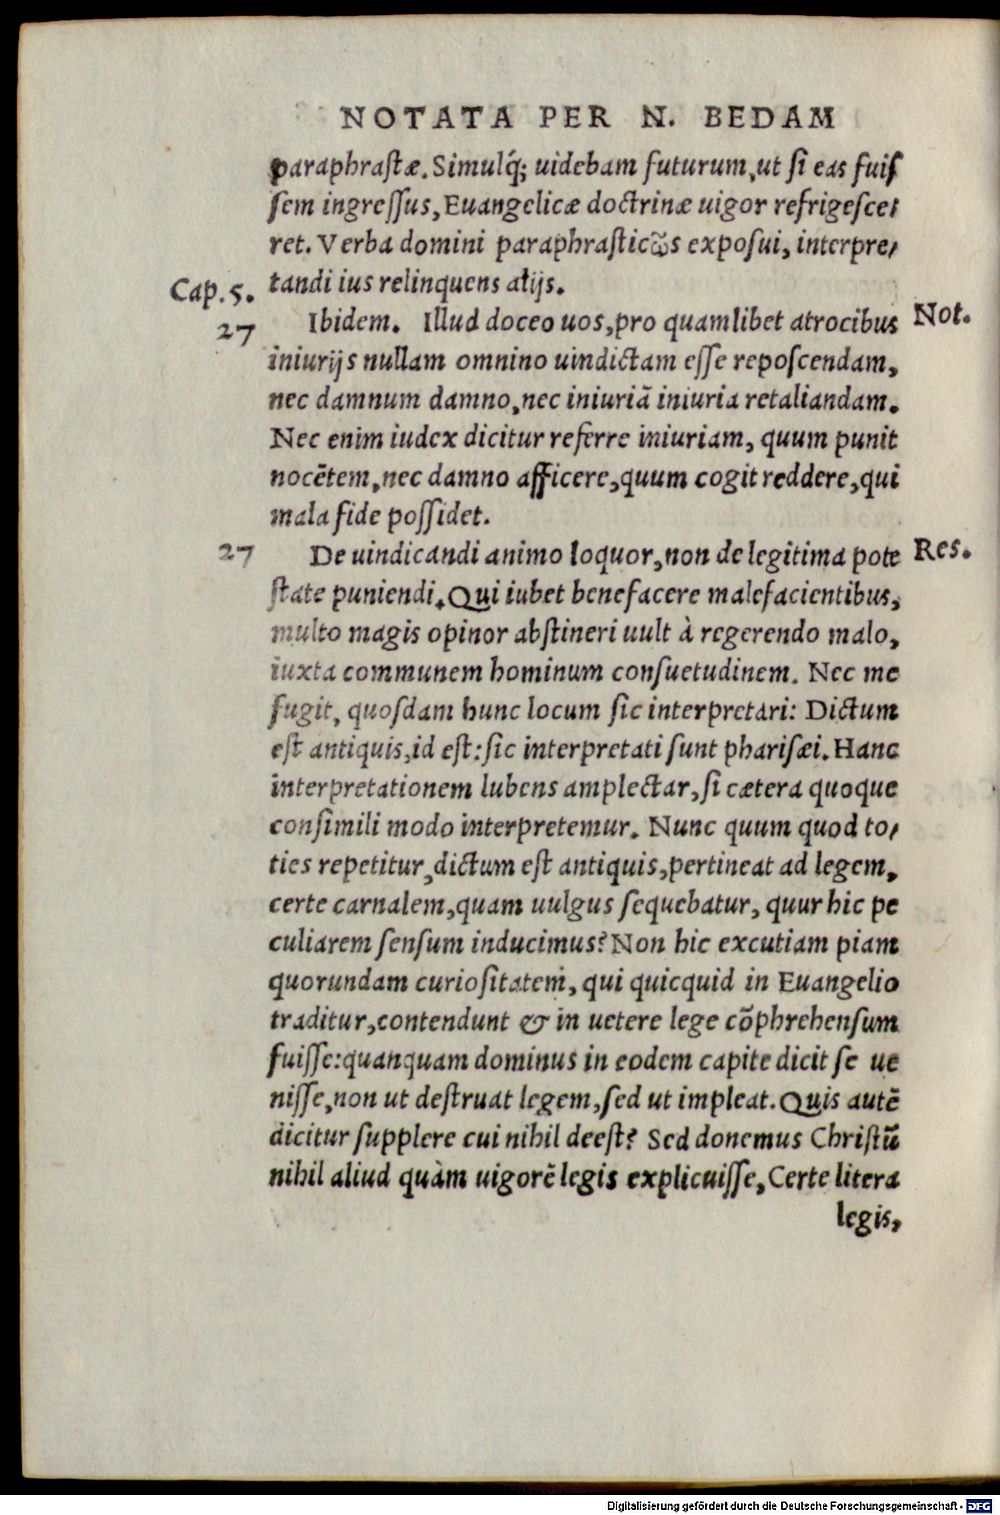 NOTATA PER N. BEDAM
paraphrastæ. Simulq́; uidebam futurum, ut si eas fuis
sem ingressus, Euangelicæ doctrinæ uigor refrigesce/
ret. Verba domini paraphrasticῶs exposui, interpre/
Cap. 5. tandi ius relinquens alijs.
27 Ibidem. Illud doceo uos, pro quamlibet atrocibus Not.
iniurijs nullam omnino uindictam esse reposcendam,
nec damnum damno, nec iniuriã iniuria retaliandam.
Nec enim iudex dicitur referre iniuriam, quum punit
nocẽtem, nec damno afficere, quum cogit reddere, qui
mala fide possidet.
27 De uindicandi animo loquor, non de legitima pote Res.
state puniendi. Qui iubet benefacere malefacientibus,
multo magis opinor abstineri uult à regerendo malo,
iuxta communem hominum consuetudinem. Nec me
fugit, quosdam hunc locum sic interpretari: Dictum
est antiquis, id est: sic interpretati sunt pharisæi. Hanc
interpretationem lubens amplectar, si cætera quoque
consimili modo interpretemur. Nunc quum quod to/
ties repetitur, dictum est antiquis, pertineat ad legem,
certe carnalem, quam uulgus sequebatur, quur hic pe
culiarem sensum inducimus? Non hic excutiam piam
quorundam curiositatem, qui quicquid in Euangelio
traditur, contendunt & in uetere lege cõphrehensum
fuisse: quanquam dominus in eodem capite dicit se ue
nisse, non ut destruat legem, sed ut impleat. Quis autẽ
dicitur supplere cui nihil deest? Sed donemus Christũ
nihil aliud quàm uigorẽ legis explicuisse, Certe litera
legis,
Digitalisierung gefördert durch die Deutsche Forschungsgemeinschaft - DFG